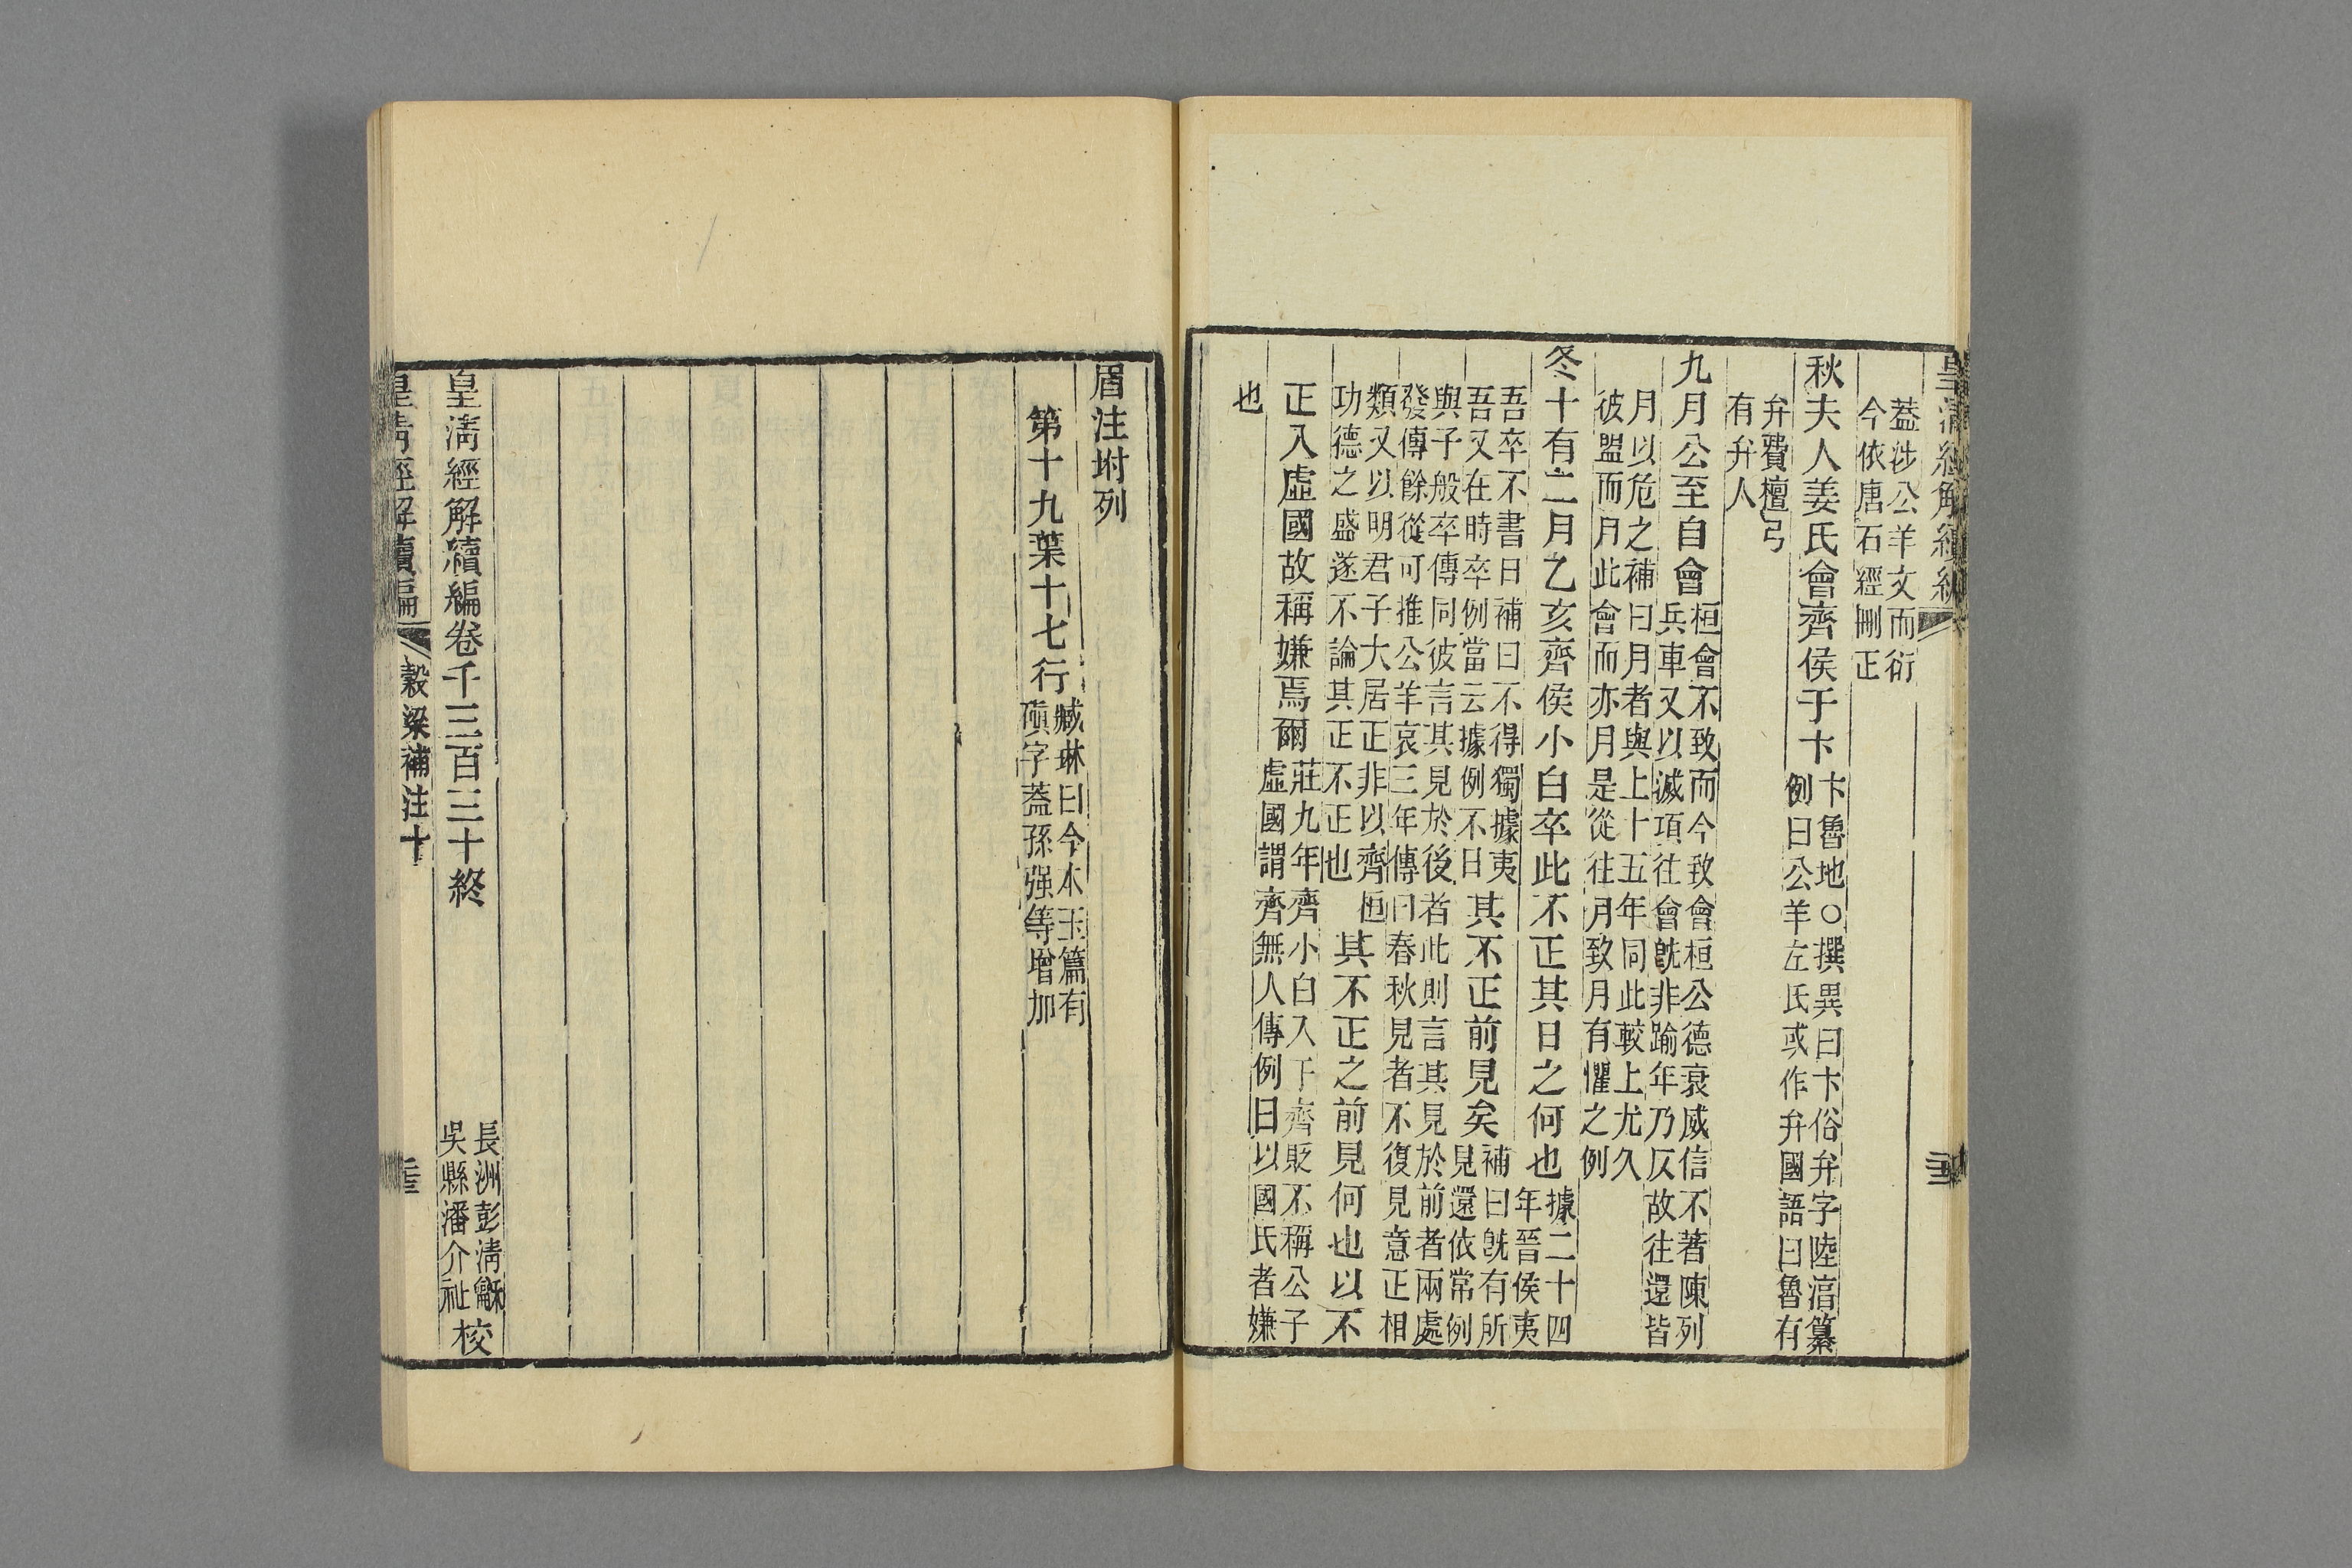 皇清經解續編
葢涉公羊文而衍
今依唐石經刪正
秋夫人姜氏會齊侯于卞
卞魯地○撰異曰卞俗弁字陸湻纂
例曰公羊左氏或作弁國語曰魯有
弁費檀弓
有弁人
九月公至自會
桓會不致而今致會桓公德衰威信不著陳列
兵車又以滅項往會旣非踰年乃反故往還皆
月以危之補曰月者與上十五年同此較上尤久
彼盟而月此會而亦月是從往月致月有懼之例
冬十有二月乙亥齊侯小白卒此不正其日之何也
據二十四
年晉侯夷
吾卒不書日補曰不得獨據夷
吾又在時卒例當云據例不日
其不正前見矣
補曰旣有所
見還依常例
與子般卒傳同彼言其見於後者此則言其見於前者兩處
發傳餘從可推公羊哀三年傳曰春秋見者不復見意正相
類又以明君子大居正非以齊桓
功德之盛遂不論其正不正也
其不正之前見何也以不
正入虛國故稱嫌焉爾
莊九年齊小白入于齊貶不稱公子
虛國謂齊無人傳例曰以國氏者嫌
也
眉注坿列
第十九葉十七行
臧琳曰今本玉篇有
磌字葢孫强等增加
皇淸經解續編卷千三百三十終
長洲彭淸龢
吳縣潘介祉
校
皇清經解續編
穀梁補注十